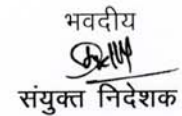 भवदीय
संयुक्त निदेशक